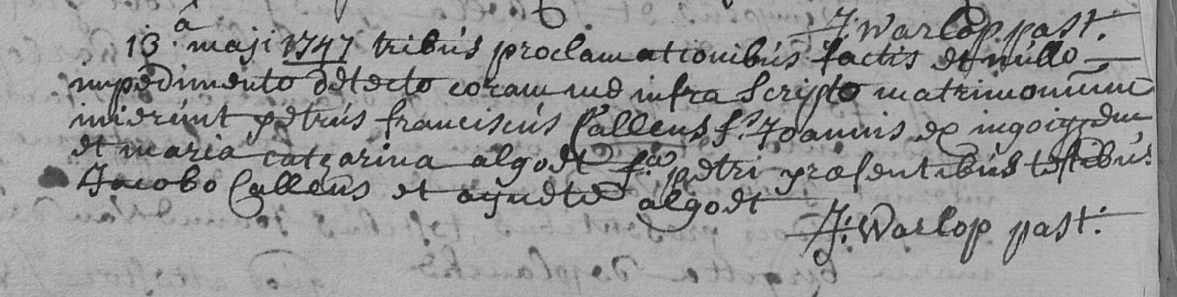 J. Warlop past.
13.a maji 1747 tribus proclamationibus factis et nullo
impedimento detecto coram me infra scripto matrimonium
inierunt petrus franciscus Callens fs. Joannis ex ingoigem
et maria catharina algoet fa. petri praesentibus testibus
Jacobo Callens et agnete algoet
J: Warlop past: